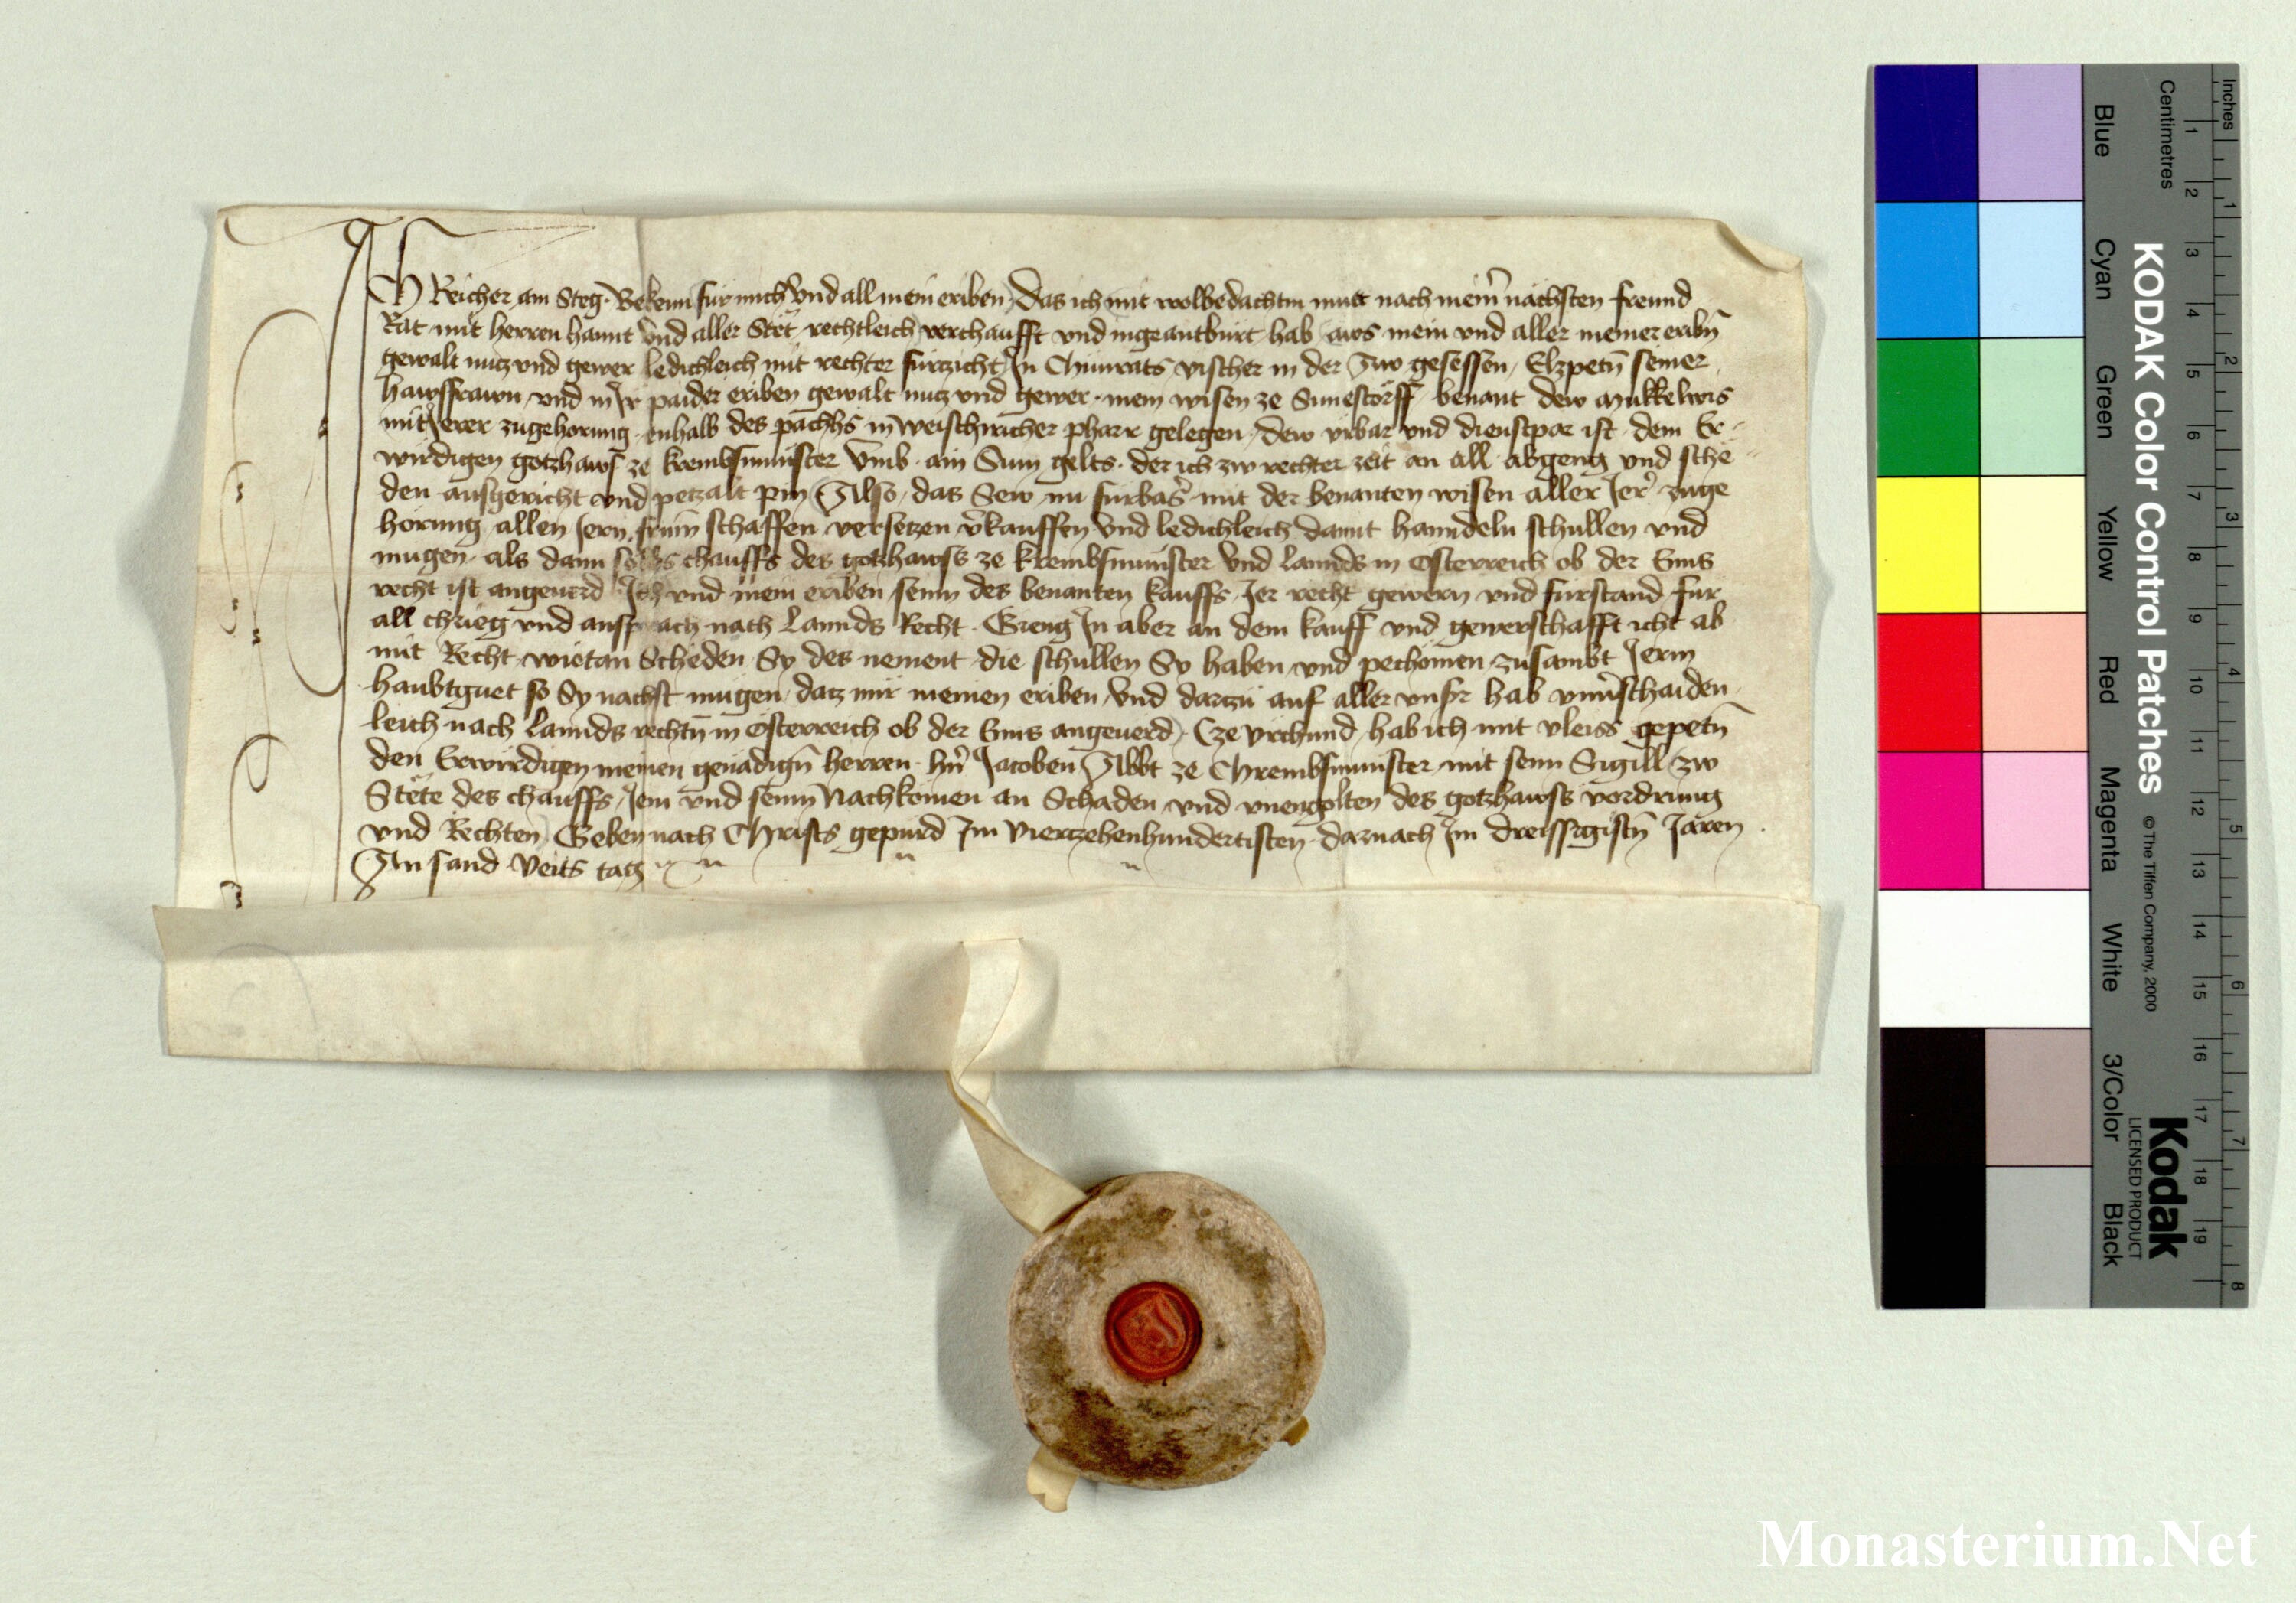 Ich Reicher am Steg Bekenn fur mich und all mein eriben Das ich mit wolbedachtm mut nach meinr nachsten freund
Rat mit herren hannt und aller Stet rechtleich verchaufft und ingeantburt hab aws mein und aller meiner eribn
gewalt nucz und gewer ledichleich mit rechter furczicht In Chunrats vischer in der Aw gesessen Elzpetn seiner
hawsfrawn und irr paider eriben gewalt nucz und gewer mein wisen ze Sunestorff benant dew Mukkelwis
mit Ierer zugehorung enhalb des pachhs in Weischircher pharr gelegen dew urbar und dienstpar ist dem Er-
wirdigen gotzhaws ze krembsmunster Umb ain Sum gelts der ich zw rechter zeit an all abgeng und sche
den ausgericht und petzalt pin Also das Sew nu furbas mit der benanten wisen aller Ierr zuge
horung allen Iern frum schaffen versetzen verkauffen und ledichleich damit hanndeln schullen und
mugen als dann chauffs des gotzhawss ze krembsmunster und lannds in Osterreich ob der Enns
recht ist angeuerd Ich und mein eriben sein des benanten kauffs Ier recht gewern und furstand fur
all chrieg und ansprach nach Lannds Recht Gieng In aber an dem kauff und gewerschafft icht ab
mit Recht wietan Scheden Sy des nement die schullen Sy haben und pechomen zusambt Ierm
haubtguet so Sy nachst mugen datz mir meinen eriben und dartzu auf aller unsr hab unverschaiden
leich nach lannds rechtn in Osterreich ob der Enns angeuerd Cze urchund hab ich mit vleiss gepetn
den Erwirdigen meinen genadign herren hern Jacoben Abbt ze Chrembsmunster mit seim Sigill zw
Stete des chauffs Iem und seinn Nachkomen an Schaden und unengolten des gotzhawss vordrung
und Rechten Geben nach Christs gepurd Im Viertzehenhundertisten darnach Im dreissigistn Jaren
An sand Veits tag
Inches
Centimetres
1 2 3 4 5 6 7 8
1 2 3 4 5 6 7 8 9 10 11 12 13 14 15 16 17 18 19
KODAK Color Control Patches © The Tiffen Company, 2000
Kodak
LICENSED PRODUCT
Blue Cyan Green Yellow Red Magenta White 3/Color Black
Monasterium.Net